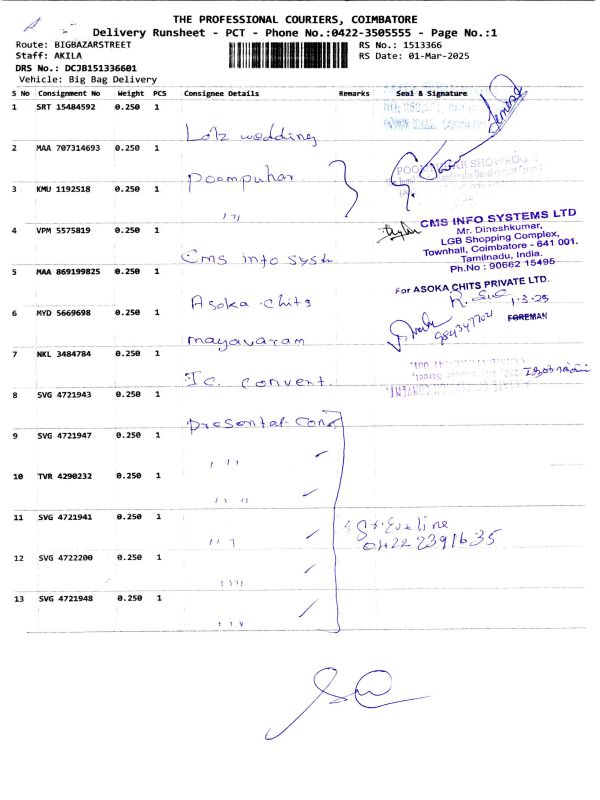 THE PROFESSIONAL COURIERS, COIMBATORE
Delivery Runsheet - PCT - Phone No.:0422-3505555 - Page No.:1
Route: BIGBAZARSTREET
RS No.: 1513366
Staff: AKILA
RS Date: 01-Mar-2025
DRS No.: DCJB151336601
Vehicle: Big Bag Delivery
S No Consignment No Weight PCS Consignee Details Remarks Seal & Signature
1 SRT 15484592 0.250 1
Lotz wedding
2 MAA 707314693 0.250 1
Poompuhar
3 KMU 1192518 0.250 1
4 VPM 5575819 0.250 1
Cms info syst
CMS INFO SYSTEMS LTD
Mr. Dineshkumar,
LGB Shopping Complex,
Townhall, Coimbatore - 641 001.
Tamilnadu, India.
Ph.No : 90662 15495
5 MAA 869199825 0.250 1
Asoka chits
For ASOKA CHITS PRIVATE LTD.
1-3-25
FOREMAN
6 MYD 5669698 0.250 1
mayavaram
7 NKL 3484784 0.250 1
Ic. convent.
8 SVG 4721943 0.250 1
presental-Con
9 SVG 4721947 0.250 1
10 TVR 4290232 0.250 1
11 SVG 4721941 0.250 1
Sr. Eveline
0422 2391635
12 SVG 4722200 0.250 1
13 SVG 4721948 0.250 1